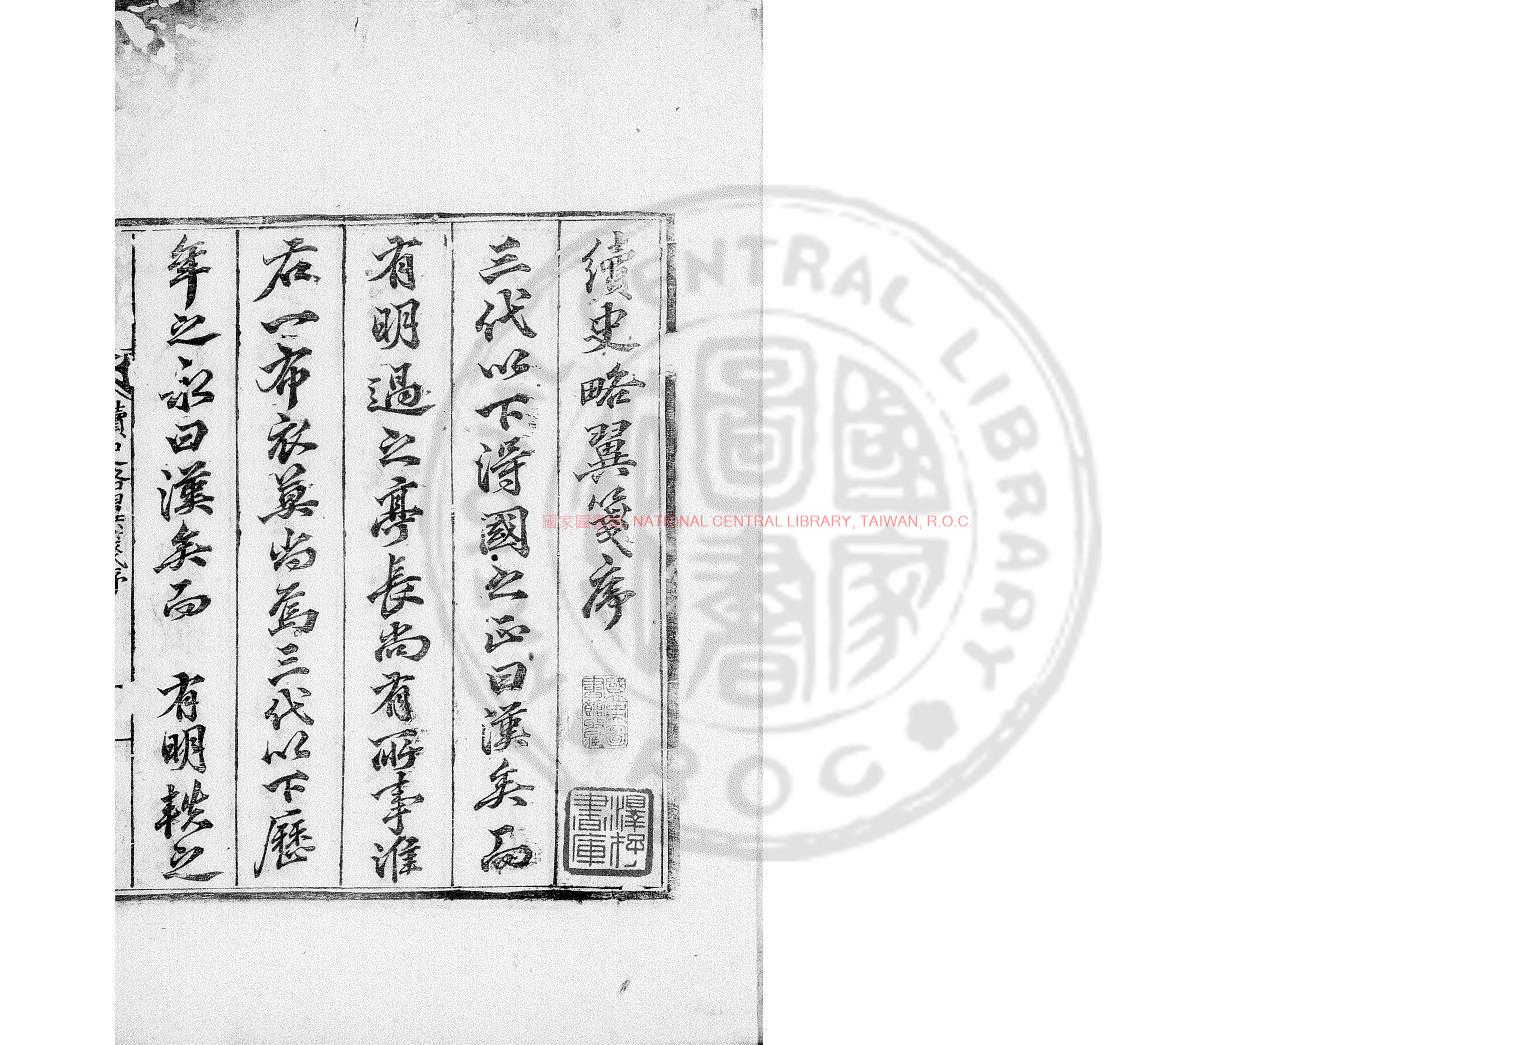 續史略翼箋序
三代以下得國之正曰漢矣而
有明過之亭長尚有所事淮
右一布衣莫尚焉三代以下歷
年之永曰漢矣而　有明軼之
澤存書庫
國家圖書館 NATIONAL CENTRAL LIBRARY, TAIWAN, R.O.C.
CENTRAL LIBRARY
ROC